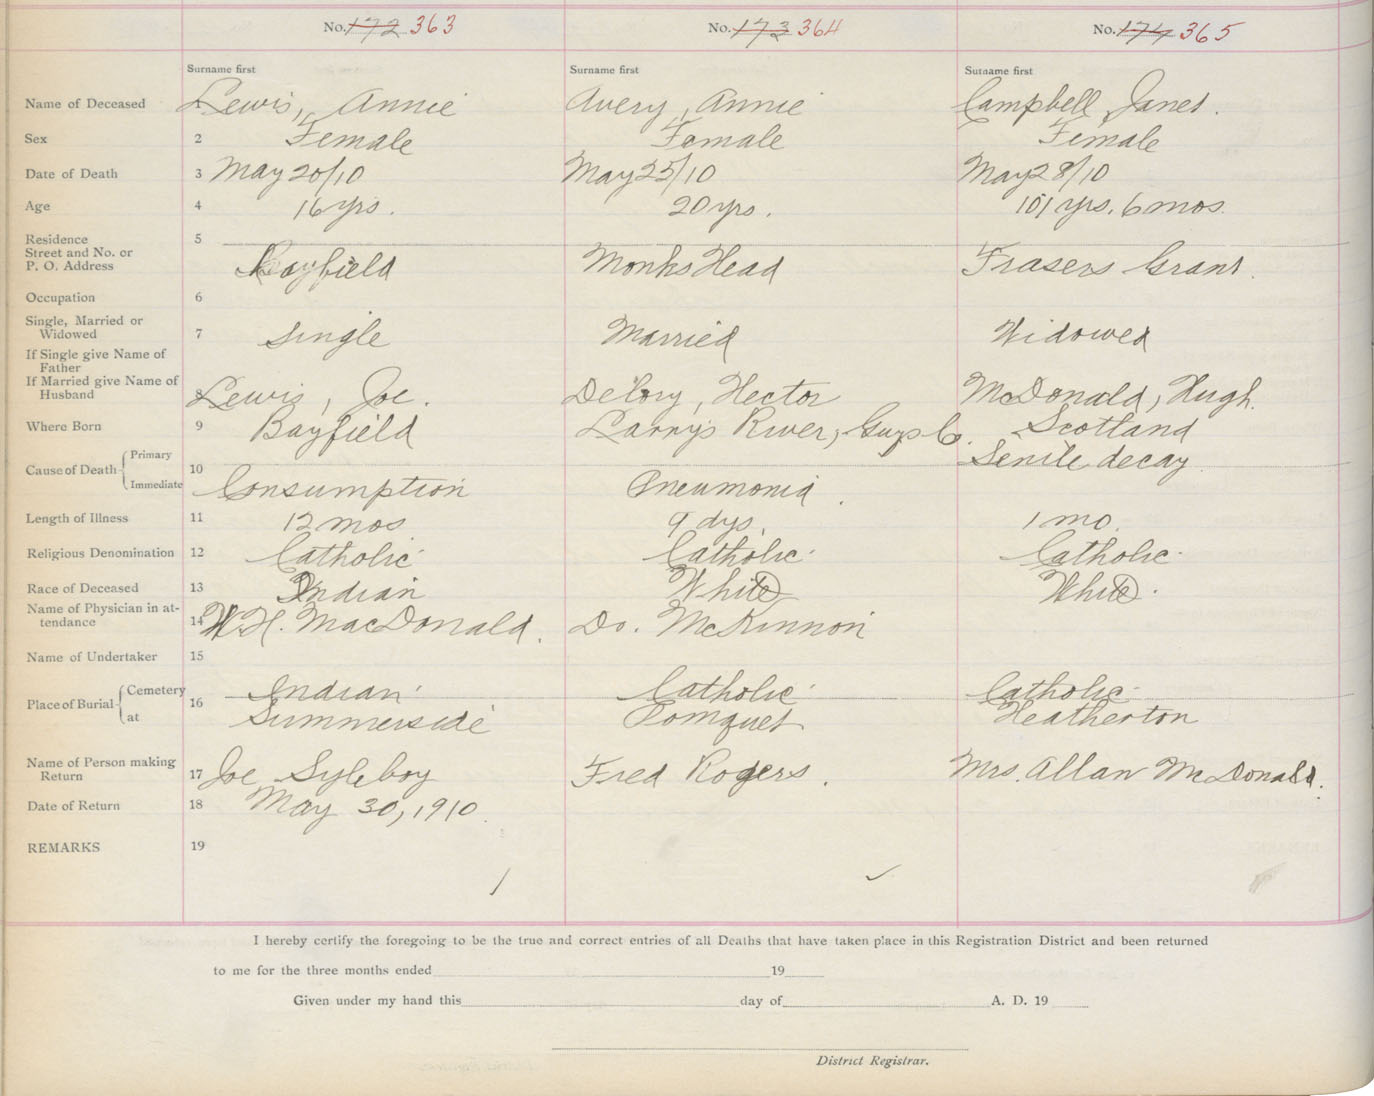 No. 172 363 No. 173 364 No. 174 365
Surname first Surname first Surname first
Name of Deceased 1 Lewis, Annie Avery, Annie Campbell, Janet.
Sex 2 Female Female Female
Date of Death 3 May 20/10 May 25/10 May 28/10
Age 4 16 yrs. 20 yrs. 101 yrs. 6 mos.
Residence 5
Street and No. or
P. O. Address Bayfield Monks Head Frasers Grant.
Occupation 6
Single, Married or
Widowed 7 Single Married Widowed
If Single give Name of
Father
If Married give Name of
Husband 8 Lewis, Joe. Delory, Hector McDonald, Hugh.
Where Born 9 Bayfield Larrys River, Guys Co. Scotland
Cause of Death Primary Senile decay
10
Immediate Consumption Pneumonia.
Length of Illness 11 12 mos 9 dys. 1 mo.
Religious Denomination 12 Catholic Catholic Catholic
Race of Deceased 13 Indian White White.
Name of Physician in at-
tendance 14 W. H. MacDonald. Dr. McKinnon
Name of Undertaker 15
Place of Burial Cemetery 16 Indian Catholic Catholic
at Summerside Pomquet Heatherton
Name of Person making
Return 17 Joe Syleboy Fred Rogers. Mrs. Allan McDonald.
Date of Return 18 May 30, 1910.
REMARKS 19
I hereby certify the foregoing to be the true and correct entries of all Deaths that have taken place in this Registration District and been returned
to me for the three months ended 19
Given under my hand this day of A. D. 19
District Registrar.